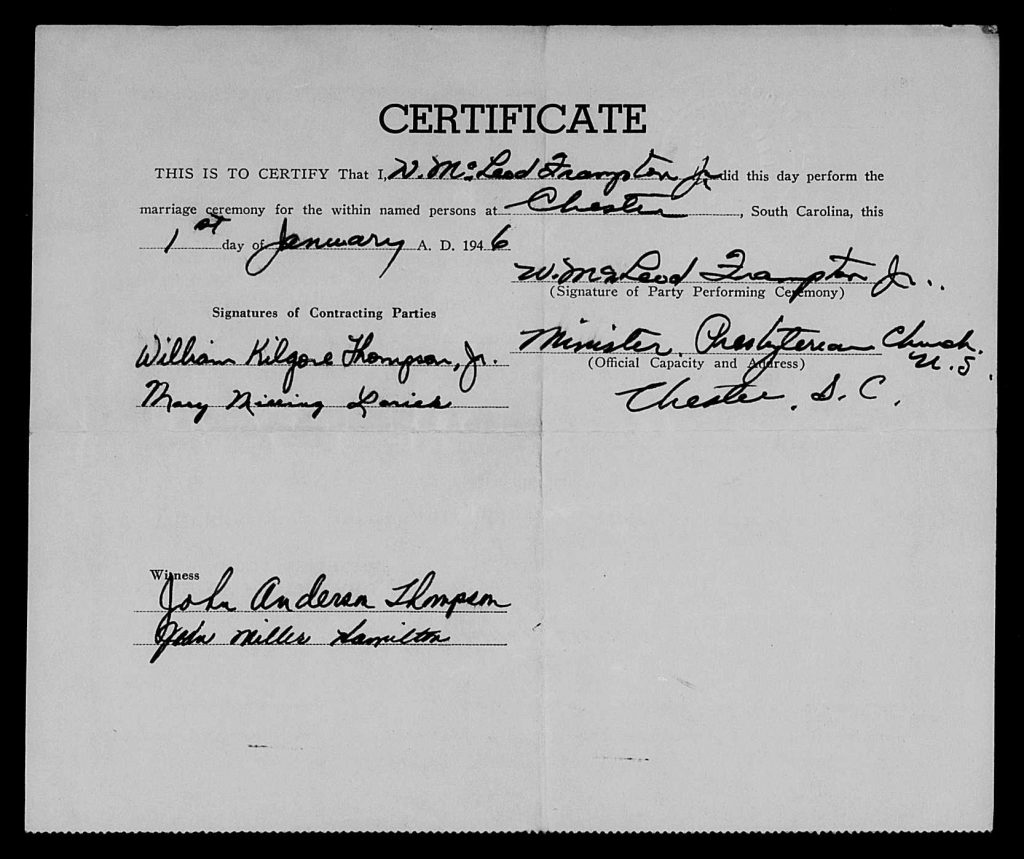 CERTIFICATE
THIS IS TO CERTIFY That I, W. McLeod Frampton Jr. did this day perform the
marriage ceremony for the within named persons at Chester, South Carolina, this
1st day of January A. D. 1946
W. McLeod Frampton Jr.
(Signature of Party Performing Ceremony)
Signatures of Contracting Parties
William Kilgore Thompson, Jr.
Minister, Presbyterian Church, U.S.
(Official Capacity and Address)
Mary
Chester, S. C.
Witness
John Anderson Thompson
John Miller Hamilton